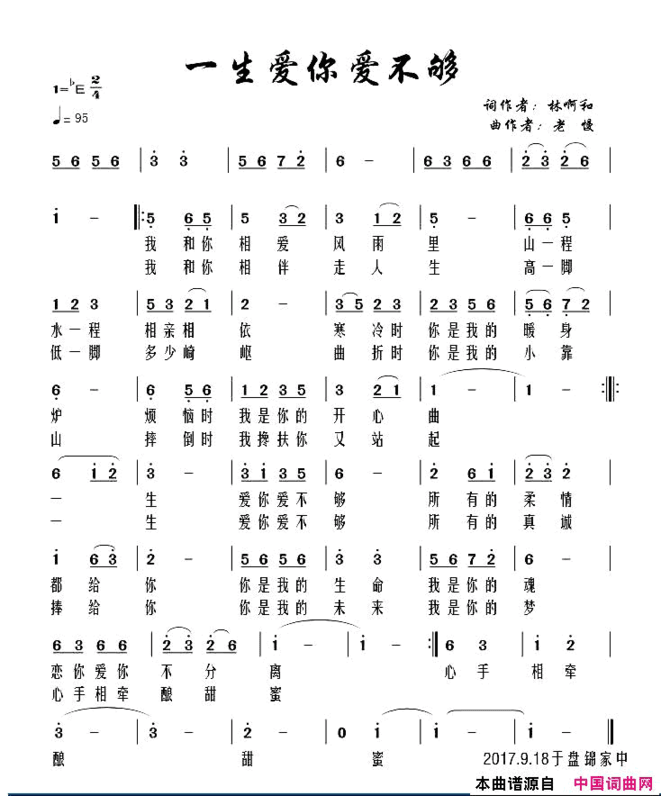 一生爱你爱不够
1=♭E 2/4
♩= 95
词作者：林啊和
曲作者：老 慢
5 6 5 6 | 3̇ 3̇ | 5 6 7 2̇ | 6 - | 6 3 6 6 | 2̇ 3̇ 2̇ 6 |
1̇ - |: 5̣ 6̣ 5̣ | 5 3 2 | 3 1 2 | 5̣ - | 6̣ 6̣ 5̣ |
我 和你 相 爱 风 雨 里 山一程
我 和你 相 伴 走 人 生 高一脚
1 2 3 | 5 3 2 1 | 2 - | 3 5 2 3 | 2 3 5 6 | 5̣ 6̣ 7̣ 2 |
水一程 相亲相 依 寒冷时 你是我的 暖 身
低一脚 多少崎 岖 曲折时 你是我的 小 靠
6̣ - | 6 5̣ 6̣ | 1 2 3 5 | 3 2 1 | 1 - | 1 - :|
炉 烦 恼时 我是你的 开 心 曲
山 摔 倒时 我搀扶你 又 站 起
6 1̇ 2̇ | 3̇ - | 3̇ 1̇ 3̇ 5 | 6 - | 2̇ 6 1̇ | 2̇ 3̇ 2̇ |
一 生 爱你爱不 够 所 有的 柔 情
一 生 爱你爱不 够 所 有的 真 诚
1̇ 6 3̇ | 2̇ - | 5 6 5 6 | 3̇ 3̇ | 5 6 7 2̇ | 6 - |
都 给 你 你是我的 生 命 我是你的 魂
捧 给 你 你是我的 未 来 我是你的 梦
6 3 6 6 | 2̇ 3̇ 2̇ 6 | 1̇ - | 1̇ - :| 6 3 | 1̇ 2̇ |
恋你爱你 不 分 离 心手 相 牵
心手相牵 酿 甜 蜜
3̇ - | 3̇ - | 2̇ - | 0 1̇ | 1̇ - | 1̇ - ‖
酿 甜 蜜
2017.9.18于盘锦家中
本曲谱源自 中国词曲网